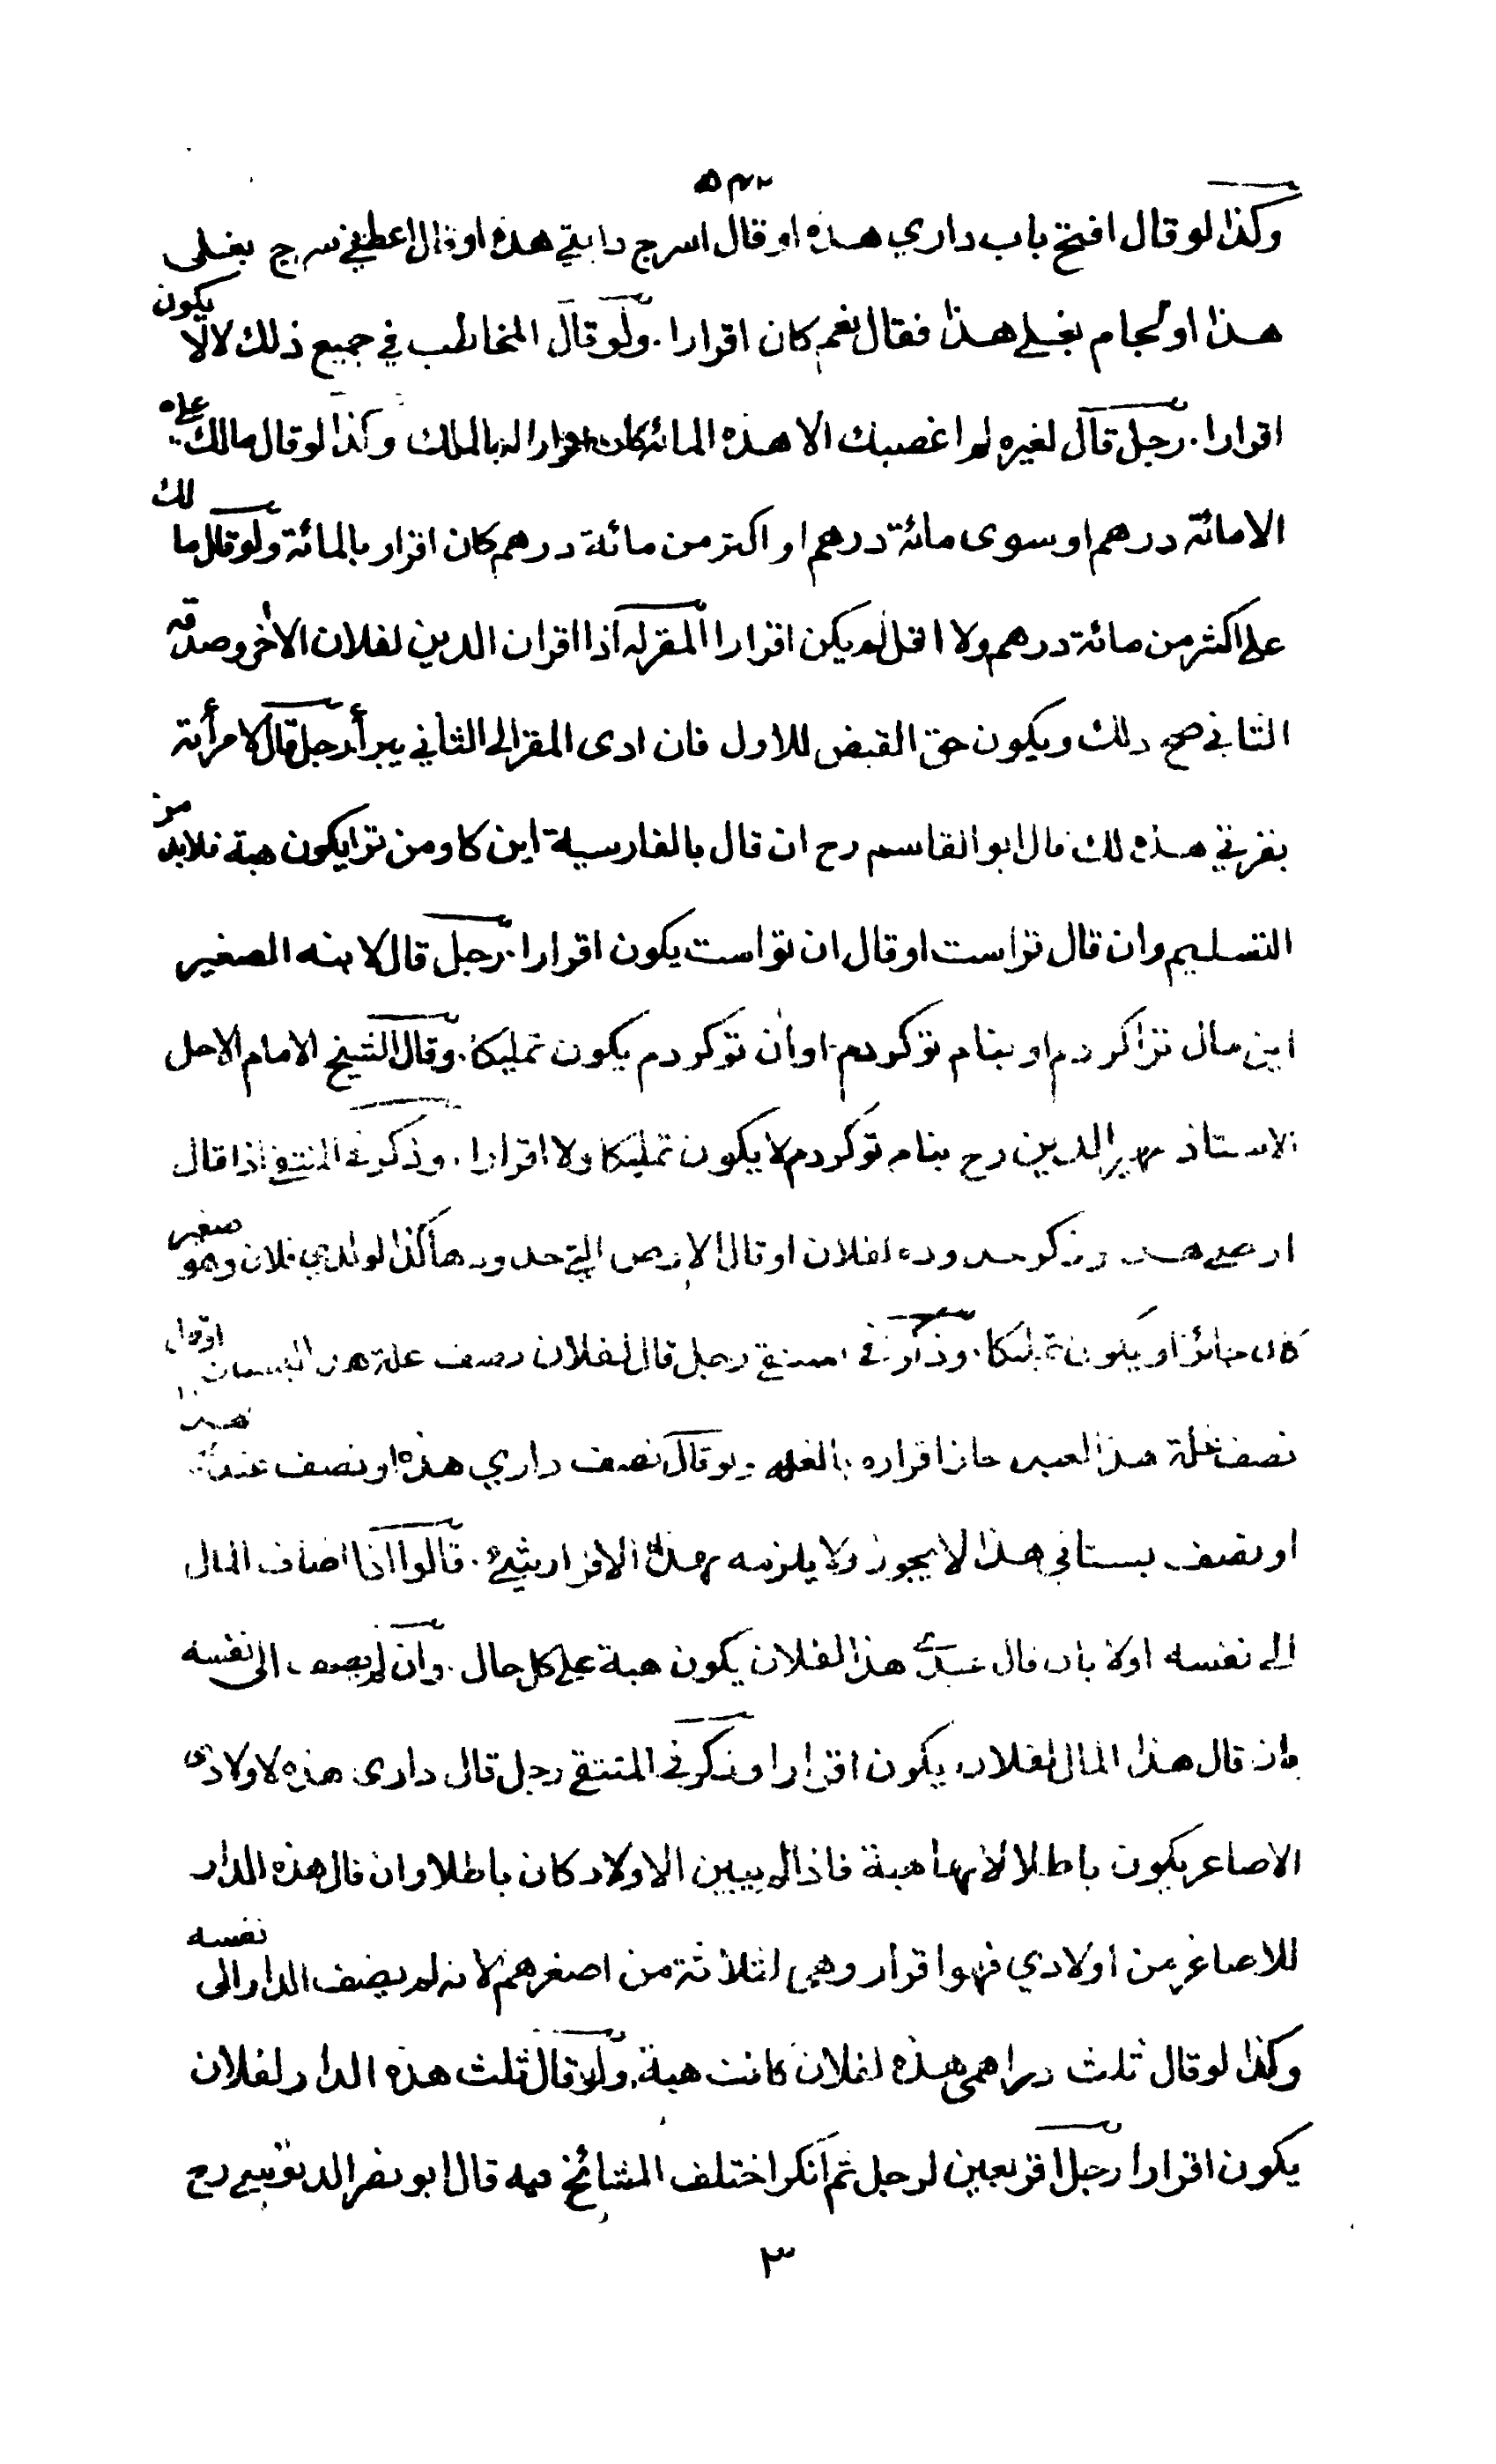 ٥٣٢
وكذا لو قال افتح باب داري هذه او قال اسرج دابتي هذه او قال اعطني سرج بغلي
هذا او لجام بغلي هذا فقال نعم كان اقرارا . ولو قال المخاطب في جميع ذلك لا لا يكون
اقرارا . رجل قال لغيره لم اغصبك الا هذه المائة كان اقرارا له بالملك وكذا لو قال مالك علي
الا مائة درهم او سوى مائة درهم او اكثر من مائة درهم كان اقرار بالمائة ولو قال ما لك
علي اكثر من مائة درهم ولا اقل لم يكن اقرارا المقر له اذا اقر ان الدين لفلان الاخر وصدقه
الثاني صح ذلك ويكون حق القبض للاول فان ادى المقر الى الثاني يبرأ رجل قال لامرأته
بقرتي هذه لك قال ابو القاسم رح ان قال بالفارسية اين كاو من ترا يكون هبة فلا بد من
التسليم وان قال تراست او قال ان تواست يكون اقرارا . رجل قال لابنه الصغير
اين مال ترا كردم او بنام تو كردم او ان تو كردم يكون تمليكا . وقال الشيخ الامام الاجل
الاستاذ ظهير الدين رح بنام تو كردم لا يكون تمليكا ولا اقرارا . وذكر في المنتقى اذا قال
ارضي هذه وذكر حدوده لفلان او قال الارض التي حدودها كذا لولدي فلان وهو صغير
كان جائزا ويكون تمليكا . وذكر في المنتقى رجل قال لفلان نصف غلة هذا البستان او قال
نصف غلة هذا العبد جاز اقراره بالغلة ولو قال نصف داري هذه او نصف عبدي هذا
او نصف بستاني هذا لا يجوز ولا يلزمه بهذا الاقرار شيء . قالوا اذا اضاف المال
الى نفسه اولا بان قال عبدي هذا لفلان يكون هبة على كل حال . وان لم يضف الى نفسه
بان قال هذا المال لفلان يكون اقرارا وذكر في المنتقى رجل قال داري هذه لاولادي
الاصاغر يكون باطلا لانها هبة فاذا لم يبين الاولاد كان باطلا وان قال هذه الدار
للاصاغر من اولادي فهو اقرار وهي لثلاثة من اصغرهم لانه لم يضف الدار الى نفسه
وكذا لو قال ثلث دراهمي هذه لفلان كانت هبة . ولو قال ثلث هذه الدار لفلان
يكون اقرارا رجل اقر بعين لرجل ثم انكر اختلف المشائخ فيه قال ابو نصر الدبوسي رح
٣